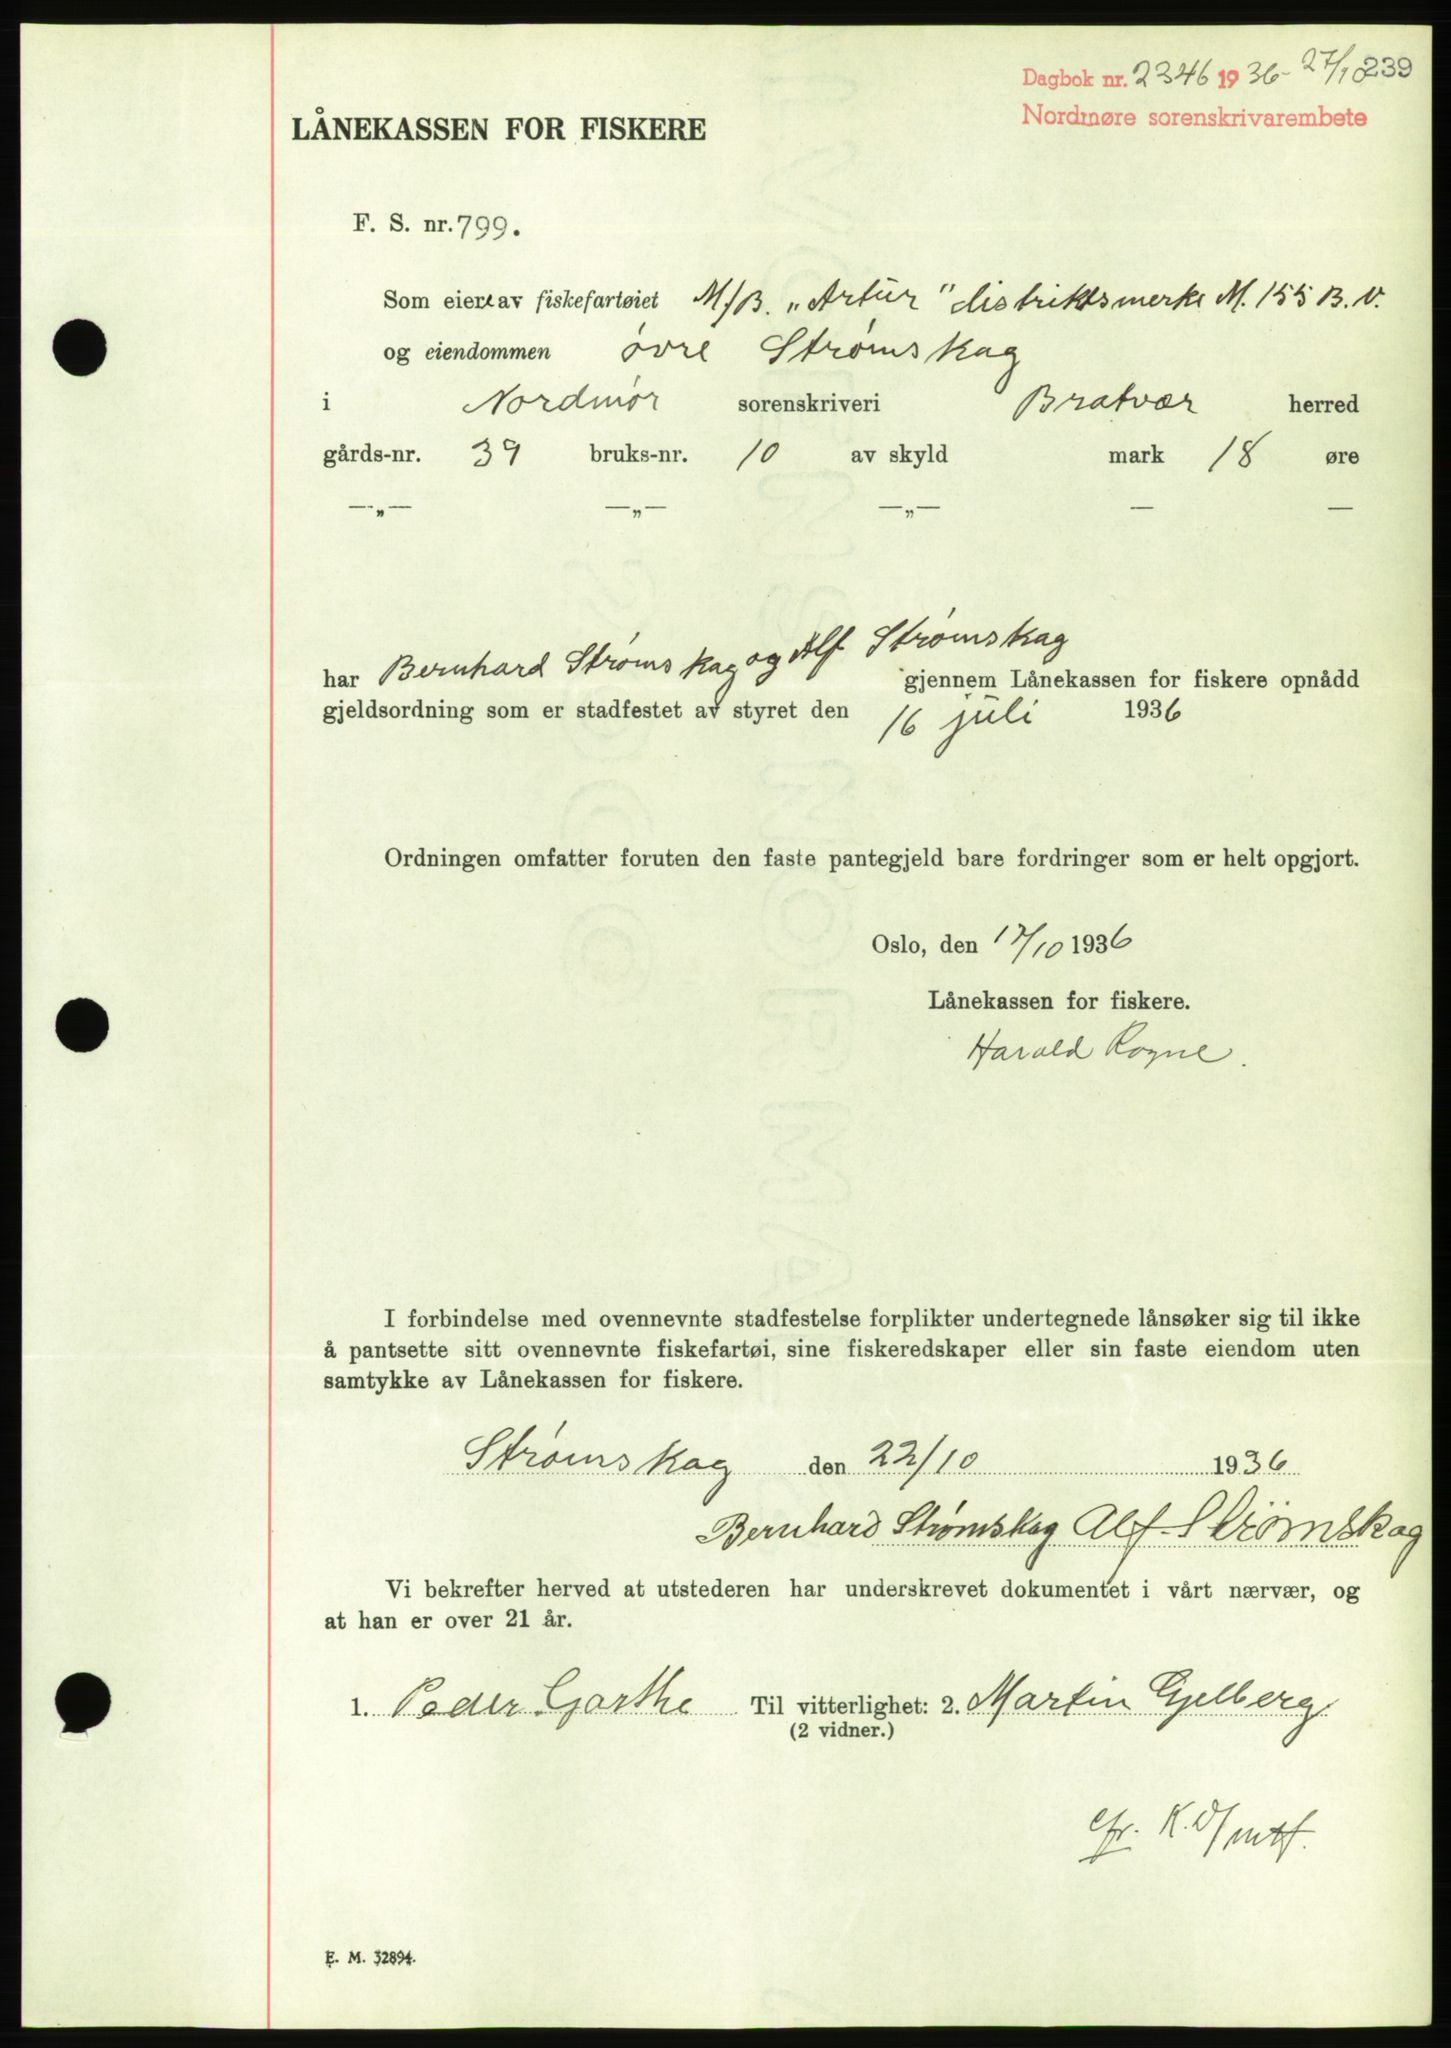 Dagbok nr. 2346 1936 - 27/10 239
Nordmøre sorenskrivarembete
LÅNEKASSEN FOR FISKERE
F. S. nr. 799.
Som eiere av fiskefartøiet M/B. „Artur" distriktsmerke M. 155 B. V.
og eiendommen øvre Strømskag
i Nordmør sorenskriveri Bratvær herred
gårds-nr. 39 bruks-nr. 10 av skyld mark 18 øre
—„— —„— —„— — —
har Bernhard Strømskag og Alf Strømskag gjennem Lånekassen for fiskere opnådd
gjeldsordning som er stadfestet av styret den 16 juli 1936
Ordningen omfatter foruten den faste pantegjeld bare fordringer som er helt opgjort.
Oslo, den 17/10 1936
Lånekassen for fiskere.
Harald Rogne.
I forbindelse med ovennevnte stadfestelse forplikter undertegnede lånsøker sig til ikke
å pantsette sitt ovennevnte fiskefartøi, sine fiskeredskaper eller sin faste eiendom uten
samtykke av Lånekassen for fiskere.
Strømskag den 22/10 1936
Bernhard Strømskag Alf Strømskag
Vi bekrefter herved at utstederen har underskrevet dokumentet i vårt nærvær, og
at han er over 21 år.
1. Peder Garthe Til vitterlighet: 2. Martin Gjelberg
(2 vidner.)
cfr. K.
E. M. 32894.